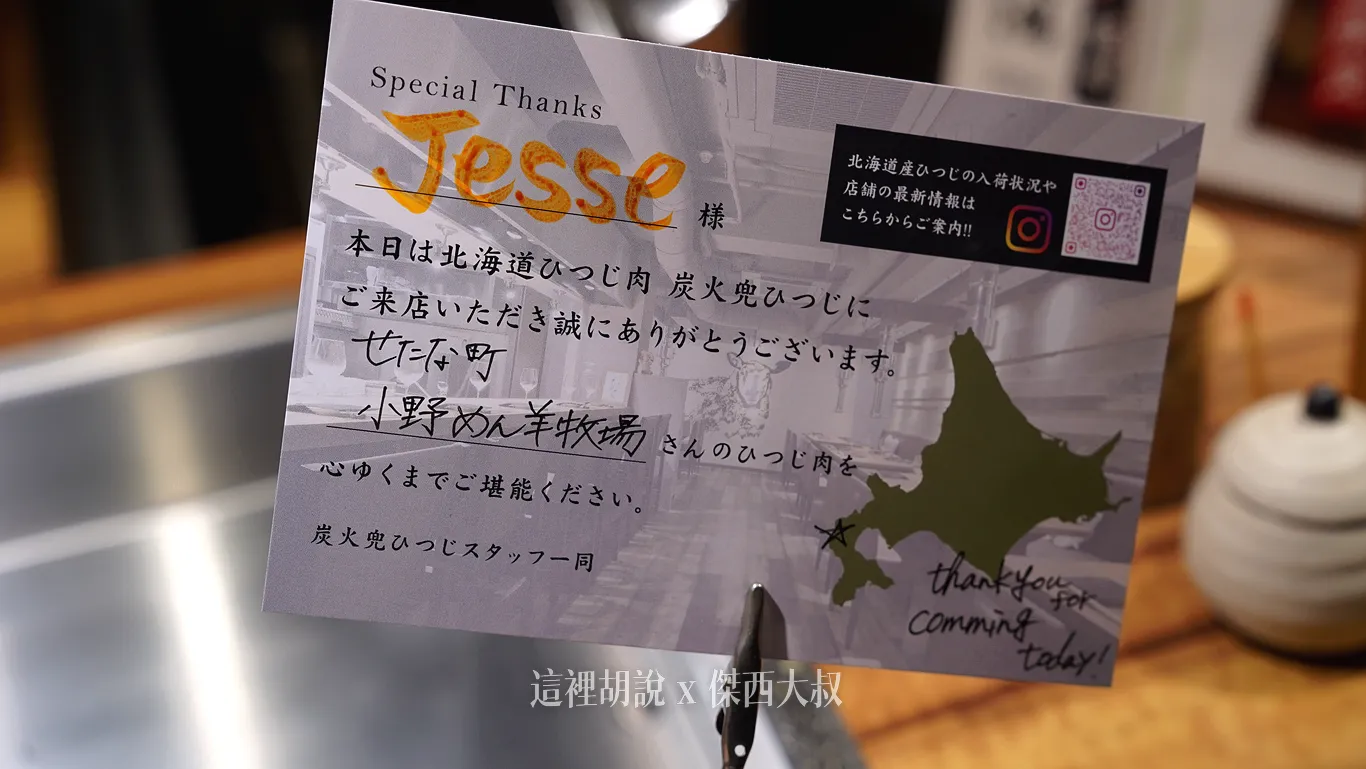 Special Thanks
Jesse 様
本日は北海道ひつじ肉 炭火兜ひつじに
ご来店いただき誠にありがとうございます。
せたな町
小野めん羊牧場 さんのひつじ肉を
心ゆくまでご堪能ください。
炭火兜ひつじスタッフ一同
北海道産ひつじの入荷状況や
店舗の最新情報は
こちらからご案内!!
thank you
for
comming
today!
這裡胡說 x 傑西大叔